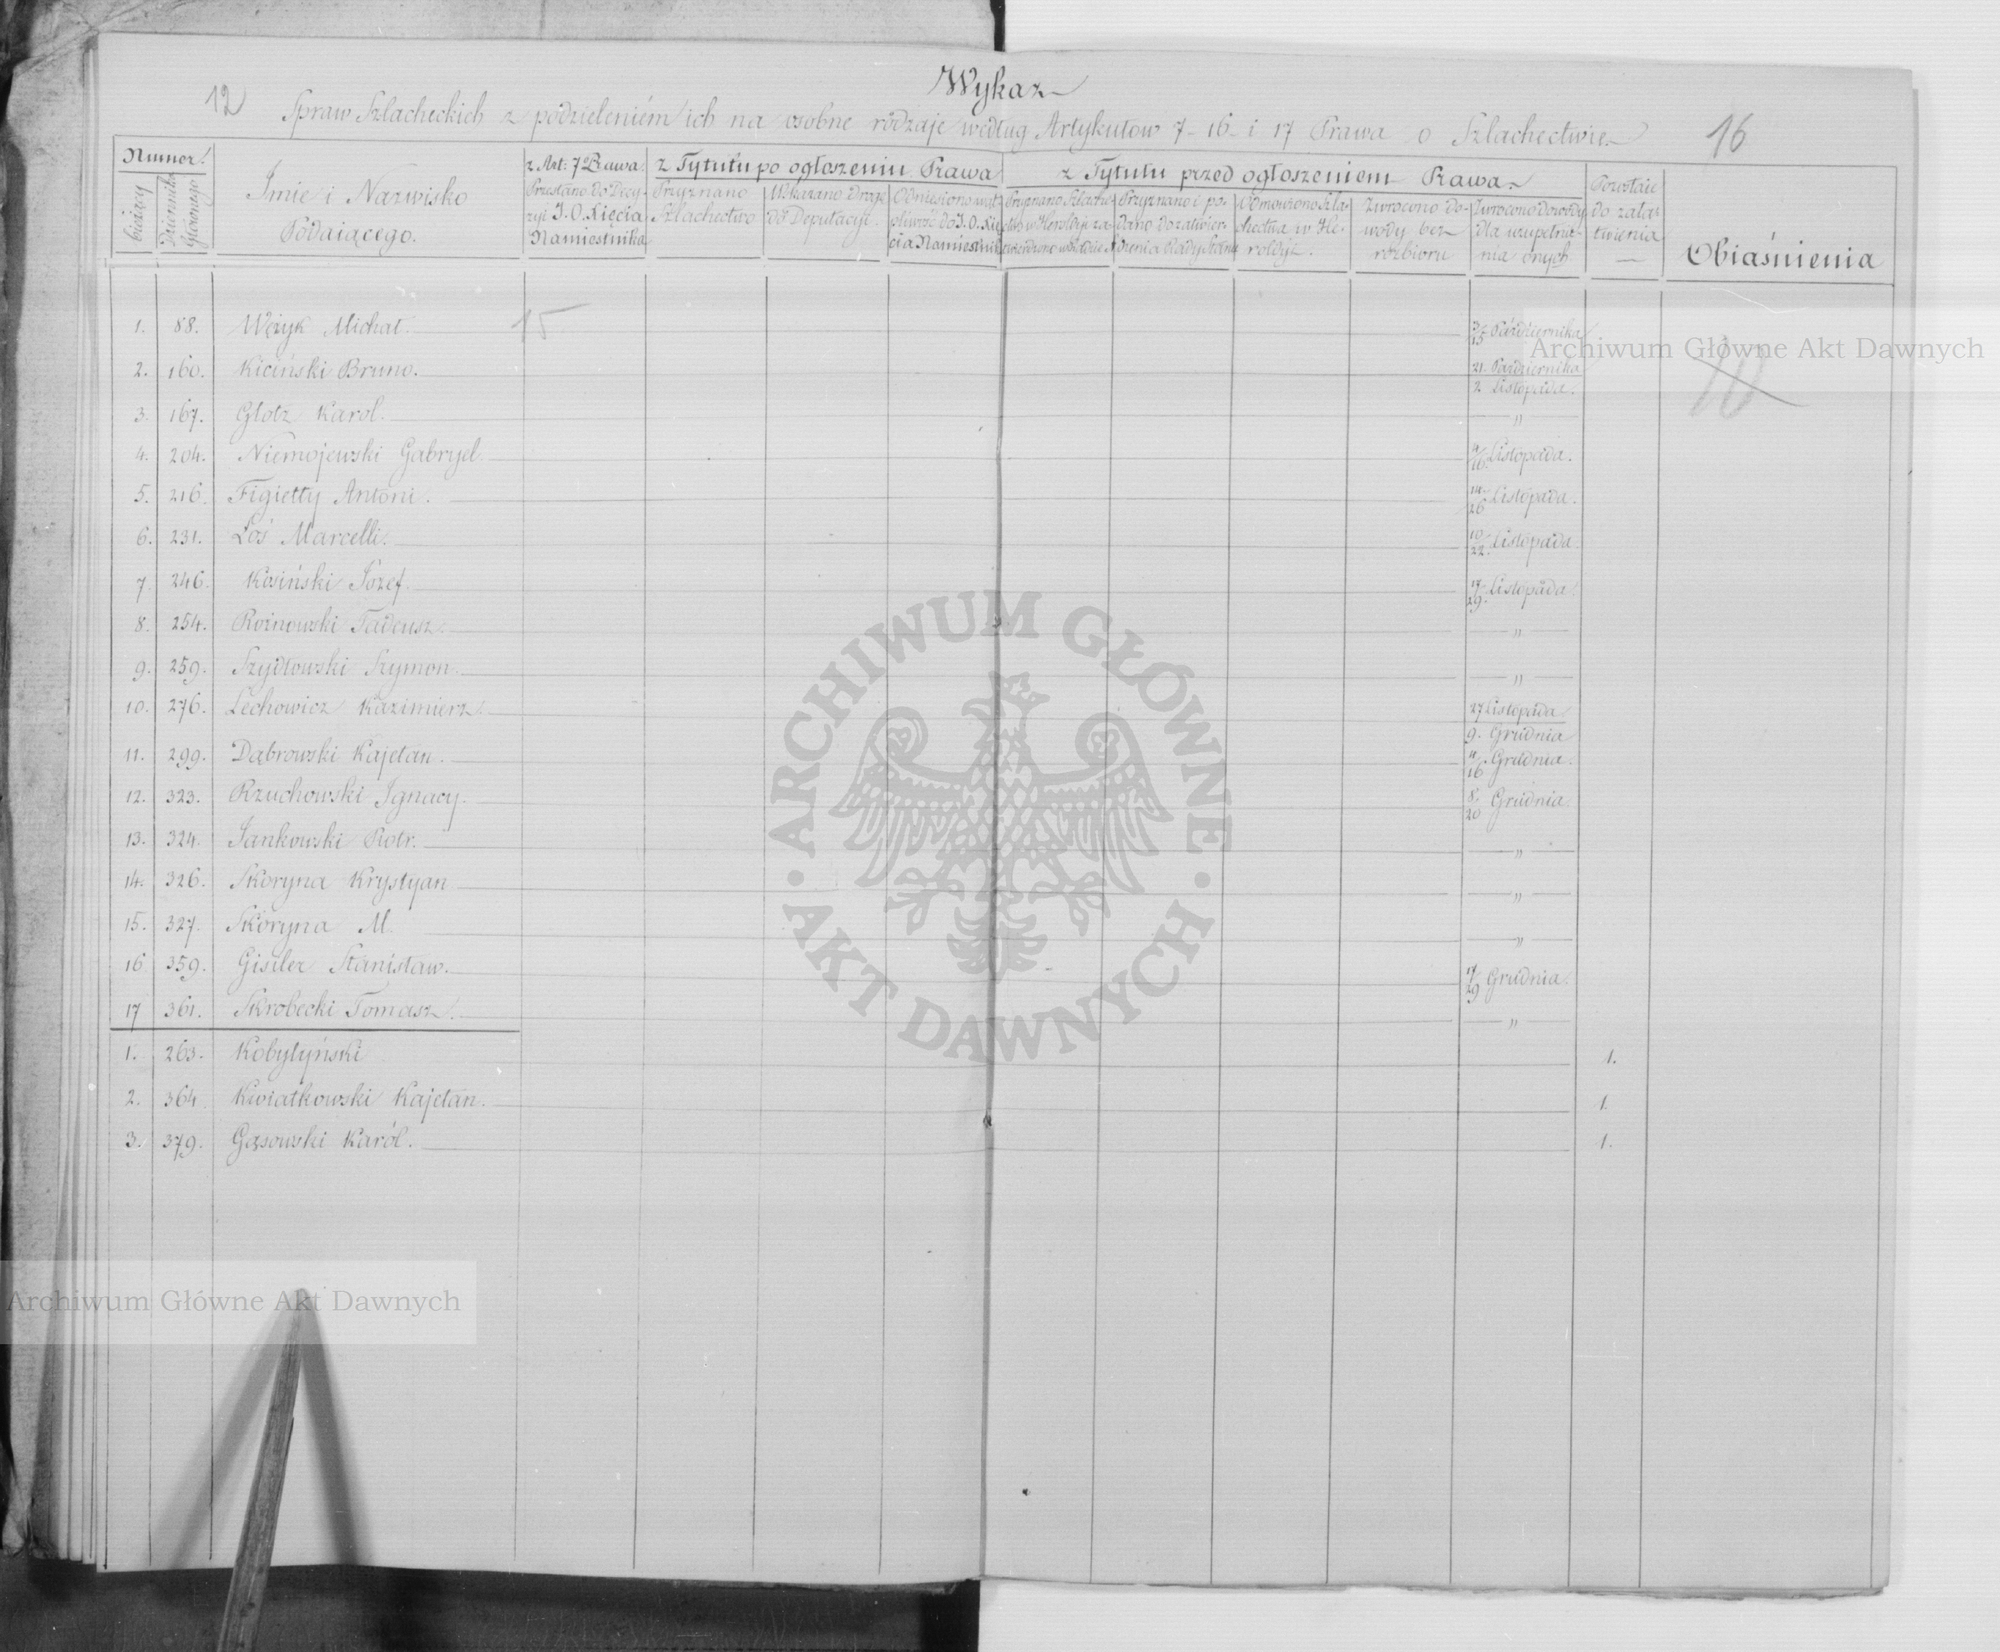 Wykaz
12 Spraw Szlacheckich z podzieleniem ich na osobne rodzaje według Artykułow 7- 16- i 17 Prawa o Szlachectwie. 16
Numer
bieżący
Dziennika Głównego
Imie i Nazwisko Podaiącego.
z Art: 7º Prawa
Przesłano do Decyzyi J. O. Xięcia Namiestnika
z Tytułu po ogłoszeniu Prawa
Przyznano Szlachectwo
Wskazano Drogę do Deputacyi.
Odniesiono wątpliwość do J. O. Xięcia Namiestnika
z Tytułu przed ogłoszeniem Prawa
Przyznano i podano do zatwierdzenia Rady Stanu
Odmówiono Szlachectwa w Heroldyi.
Zwrocono dowody bez rozbioru
Zwrocono Dowody dla uzupełnienia onych
Pozostaie do załatwienia
Obiaśnienia
1. 88. Wężyk Michał. 15 3/15 Października
2. 160. Kiciński Bruno. 21. Października 2 Listopada.
3. 167. Glotz Karol. "
4. 204. Niemojewski Gabryel. 4/16 Listopada.
5. 216. Figietty Antoni. 14/26 Listopada.
6. 231. Łoś Marcelli. 10/22 Listopada.
7. 246. Kosiński Józef. 17/29 Listopada.
8. 254. Rożnowski Tadeusz. "
9. 259. Szydłowski Szymon. "
10. 276. Lechowicz Kazimierz. 27 Listopada 9. Grudnia
11. 299. Dąbrowski Kajetan. 4/16 Grudnia.
12. 323. Rzuchowski Ignacy. 8/20 Grudnia.
13. 324. Jankowski Piotr. "
14. 326. Skoryna Krystyan "
15. 327. Skoryna M. "
16 359. Gisiler Stanisław. 17/29 Grudnia.
17 361. Skrobecki Tomasz. "
1. 263. Kobylyński 1.
2. 364 Kwiatkowski Kajetan. 1.
3. 379. Gąsowski Karól. 1.
10
Archiwum Główne Akt Dawnych
ARCHIWUM GŁÓWNE · AKT DAWNYCH ·
Archiwum Główne Akt Dawnych